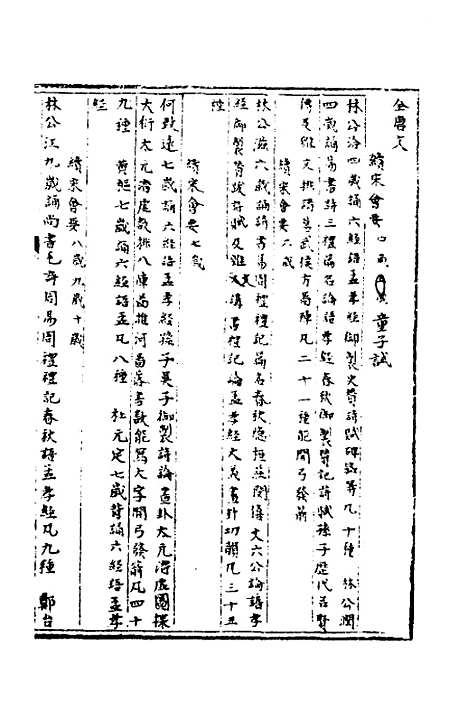 續宋會要 童子試
林公滋四歲誦六經語孟孝經御製文賛詩賦碑誌等九十種 林公潤
四歲誦易書詩三禮篇名論語孝經春秋御製賛記詩賦孫子歷代名賢
傳是雜文排諸葛武侯方局陣凡二十一種能開弓發箭
續宋會要六歲
林公滋六歲誦詩書易周禮禮記篇名春秋隱桓莊閔僖文六公論語孝
經御製賛跋詩賦及雜文講書禮記論孟孝經大義畫卦切韻凡三十五
種
續宋會要七歲
何致遠七歲誦六經語孟孝經孫子吳子御製詩論畫卦太元潛虛圖揲
大衍太元潛虛數排八陣局推河圖洛書數能寫大字開弓發箭凡四十
九種 黄 七歲誦六經語孟凡八種 杜元定七歲背誦六經語孟孝
經
續宋會要八歲九歲十歲
林公汪九歲誦尚書毛詩周易周禮禮記春秋語孟孝經凡九種 鄭台